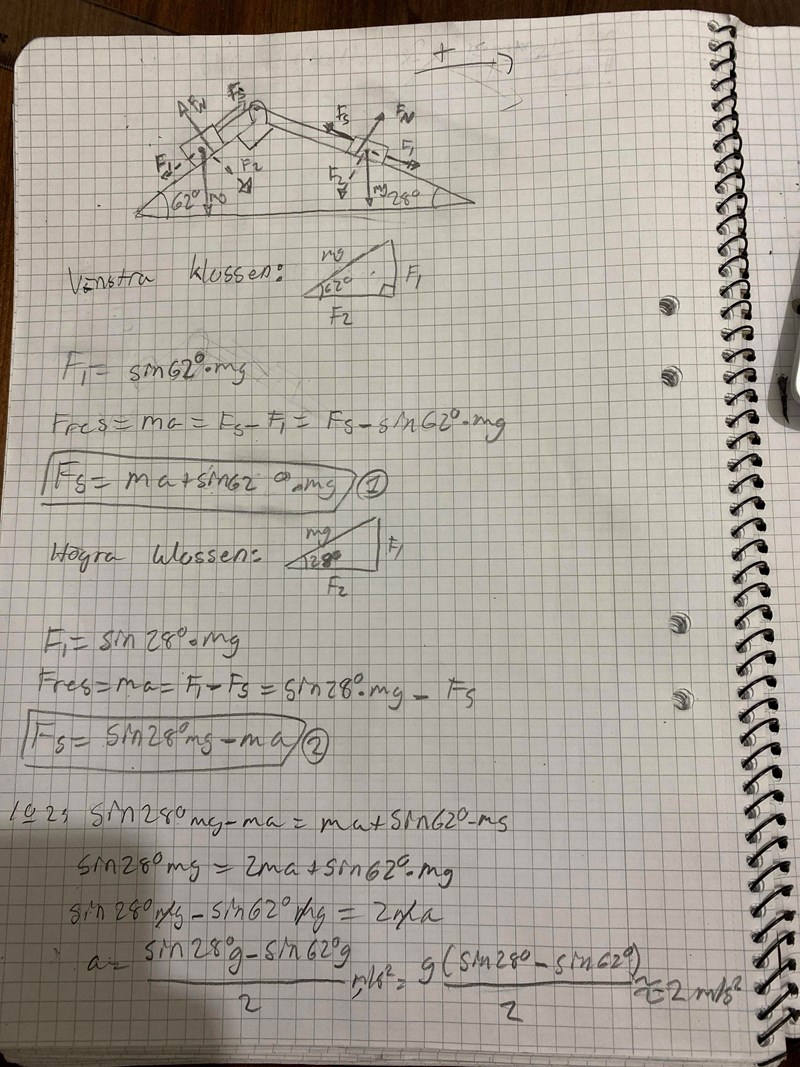 +
F_N F_S F_S F_N
F_1 F_2 F_2 F_1
62° mg 28°
Vänstra klossen: mg 62° F_1
F_2
F_1 = sin62°·mg
Fres = ma = F_S - F_1 = F_S - sin62°·mg
F_S = ma + sin62°·mg ①
Högra klossen: mg 28° F_1
F_2
F_1 = sin28°·mg
Fres = ma = F_1 - F_S = sin28°·mg - F_S
F_S = sin28°mg - ma ②
1 o 2: sin28°mg - ma = ma + sin62°·mg
sin28°mg = 2ma + sin62°·mg
sin28°mg - sin62°mg = 2ma
a = (sin28°g - sin62°g)/2 m/s² = g(sin28° - sin62°)/2 ≈ 2 m/s²